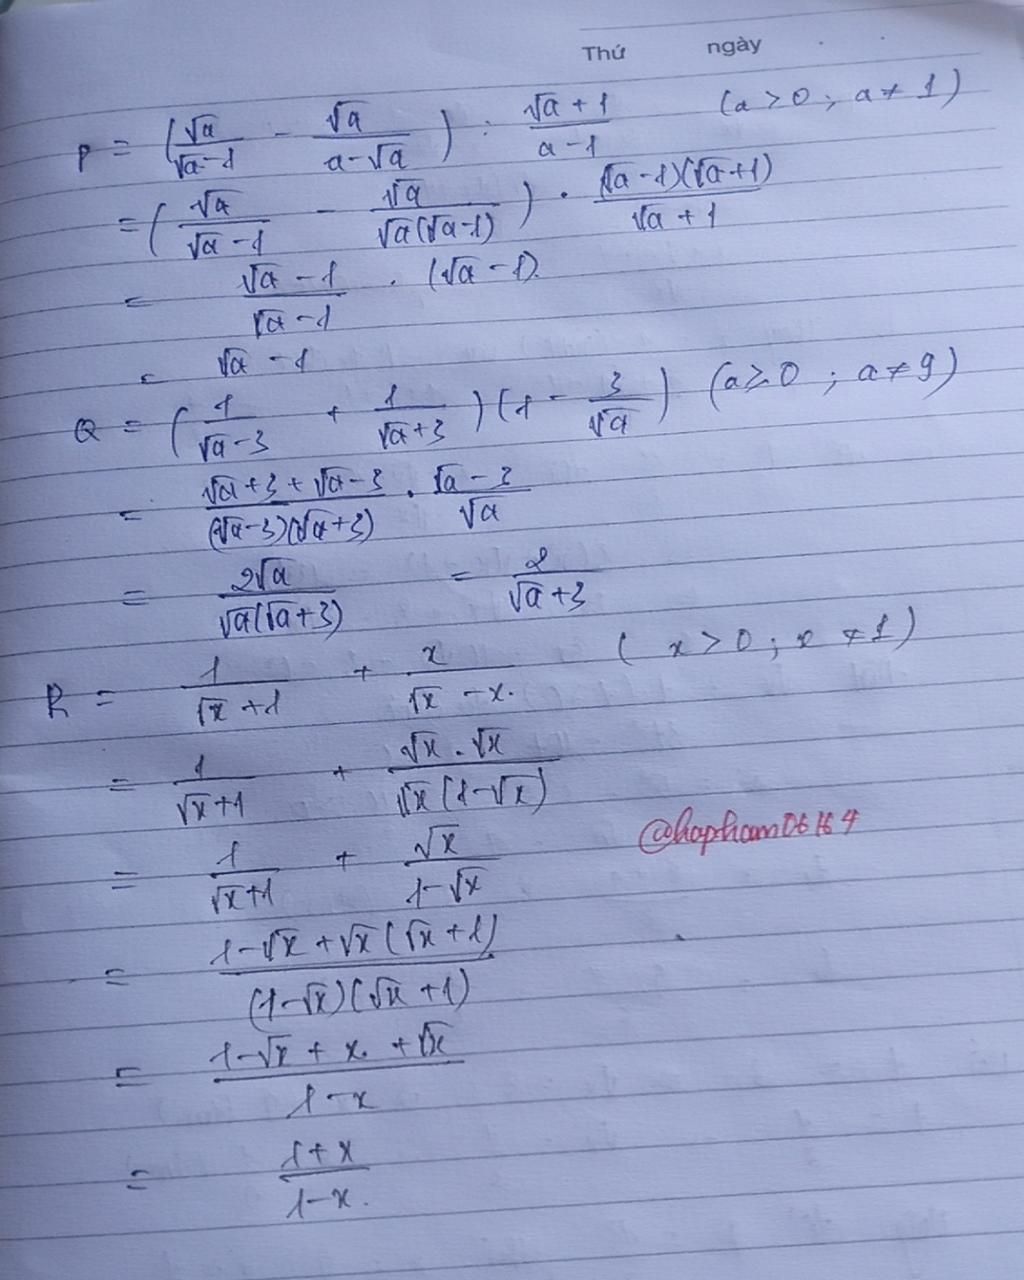 Thứ ngày
P = (√a/(√a-1) - √a/(a-√a)) : (√a+1)/(a-1) (a > 0 ; a ≠ 1)
= (√a/(√a-1) - √a/(√a(√a-1))) . (√a-1)(√a+1)/(√a+1)
= (√a-1)/(√a-1) . (√a-1).
= √a - 1
Q = (1/(√a-3) + 1/(√a+3))(1 - 3/√a) (a ≥ 0 ; a ≠ 9)
= (√a+3+√a-3)/((√a-3)(√a+3)) . (√a-3)/√a
= 2√a/(√a(√a+3)) = 2/(√a+3)
R = 1/(√x+1) + x/(√x-x). ( x > 0 ; x ≠ 1)
= 1/(√x+1) + √x.√x/(√x(1-√x))
@hapham06164
= 1/(√x+1) + √x/(1-√x)
= (1-√x+√x(√x+1))/((1-√x)(√x+1))
= (1-√x+x+√x)/(1-x)
= (1+x)/(1-x).